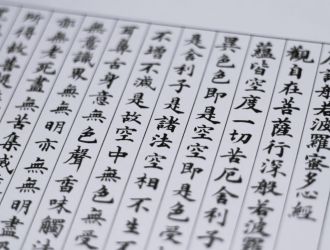 般若波羅蜜多心經
觀自在菩薩行深般若波羅
蘊皆空度一切苦厄舍利子
異色色即是空空即是色受
是舍利子是諸法空相不生不
不增不減是故空中無色無受
耳鼻舌身意無色聲香味觸法
無意識界無無明亦無無明盡
亦無老死盡無苦集滅
所得故菩提